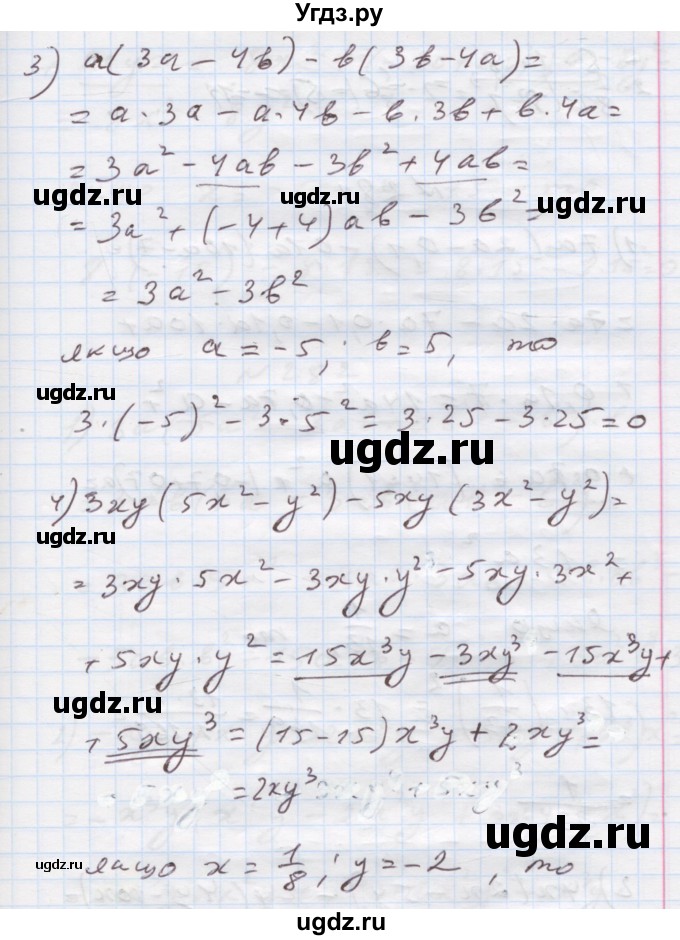 Угдз.ру
3) a(3a - 4b) - b(3b - 4a) =
= a · 3a - a · 4b - b · 3b + b · 4a =
= 3a² - 4ab - 3b² + 4ab =
ugdz.ru ugdz.ru ugdz.ru
= 3a² + (-4+4)ab - 3b² =
= 3a² - 3b²
якщо a = -5; b = 5, то
ugdz.ru
3 · (-5)² - 3 · 5² = 3 · 25 - 3 · 25 = 0
ugdz.ru
4) 3xy(5x² - y²) - 5xy(3x² - y²) =
ugdz.ru
= 3xy · 5x² - 3xy · y² - 5xy · 3x² +
+ 5xy · y² = 15x³y - 3xy³ - 15x³y +
ugdz.ru ugdz.ru
+ 5xy³ = (15-15)x³y + 2xy³ =
= 2xy³
ugdz.ru
якщо x = 1/8; y = -2, то
ugdz.ru
ugdz.ru ugdz.ru